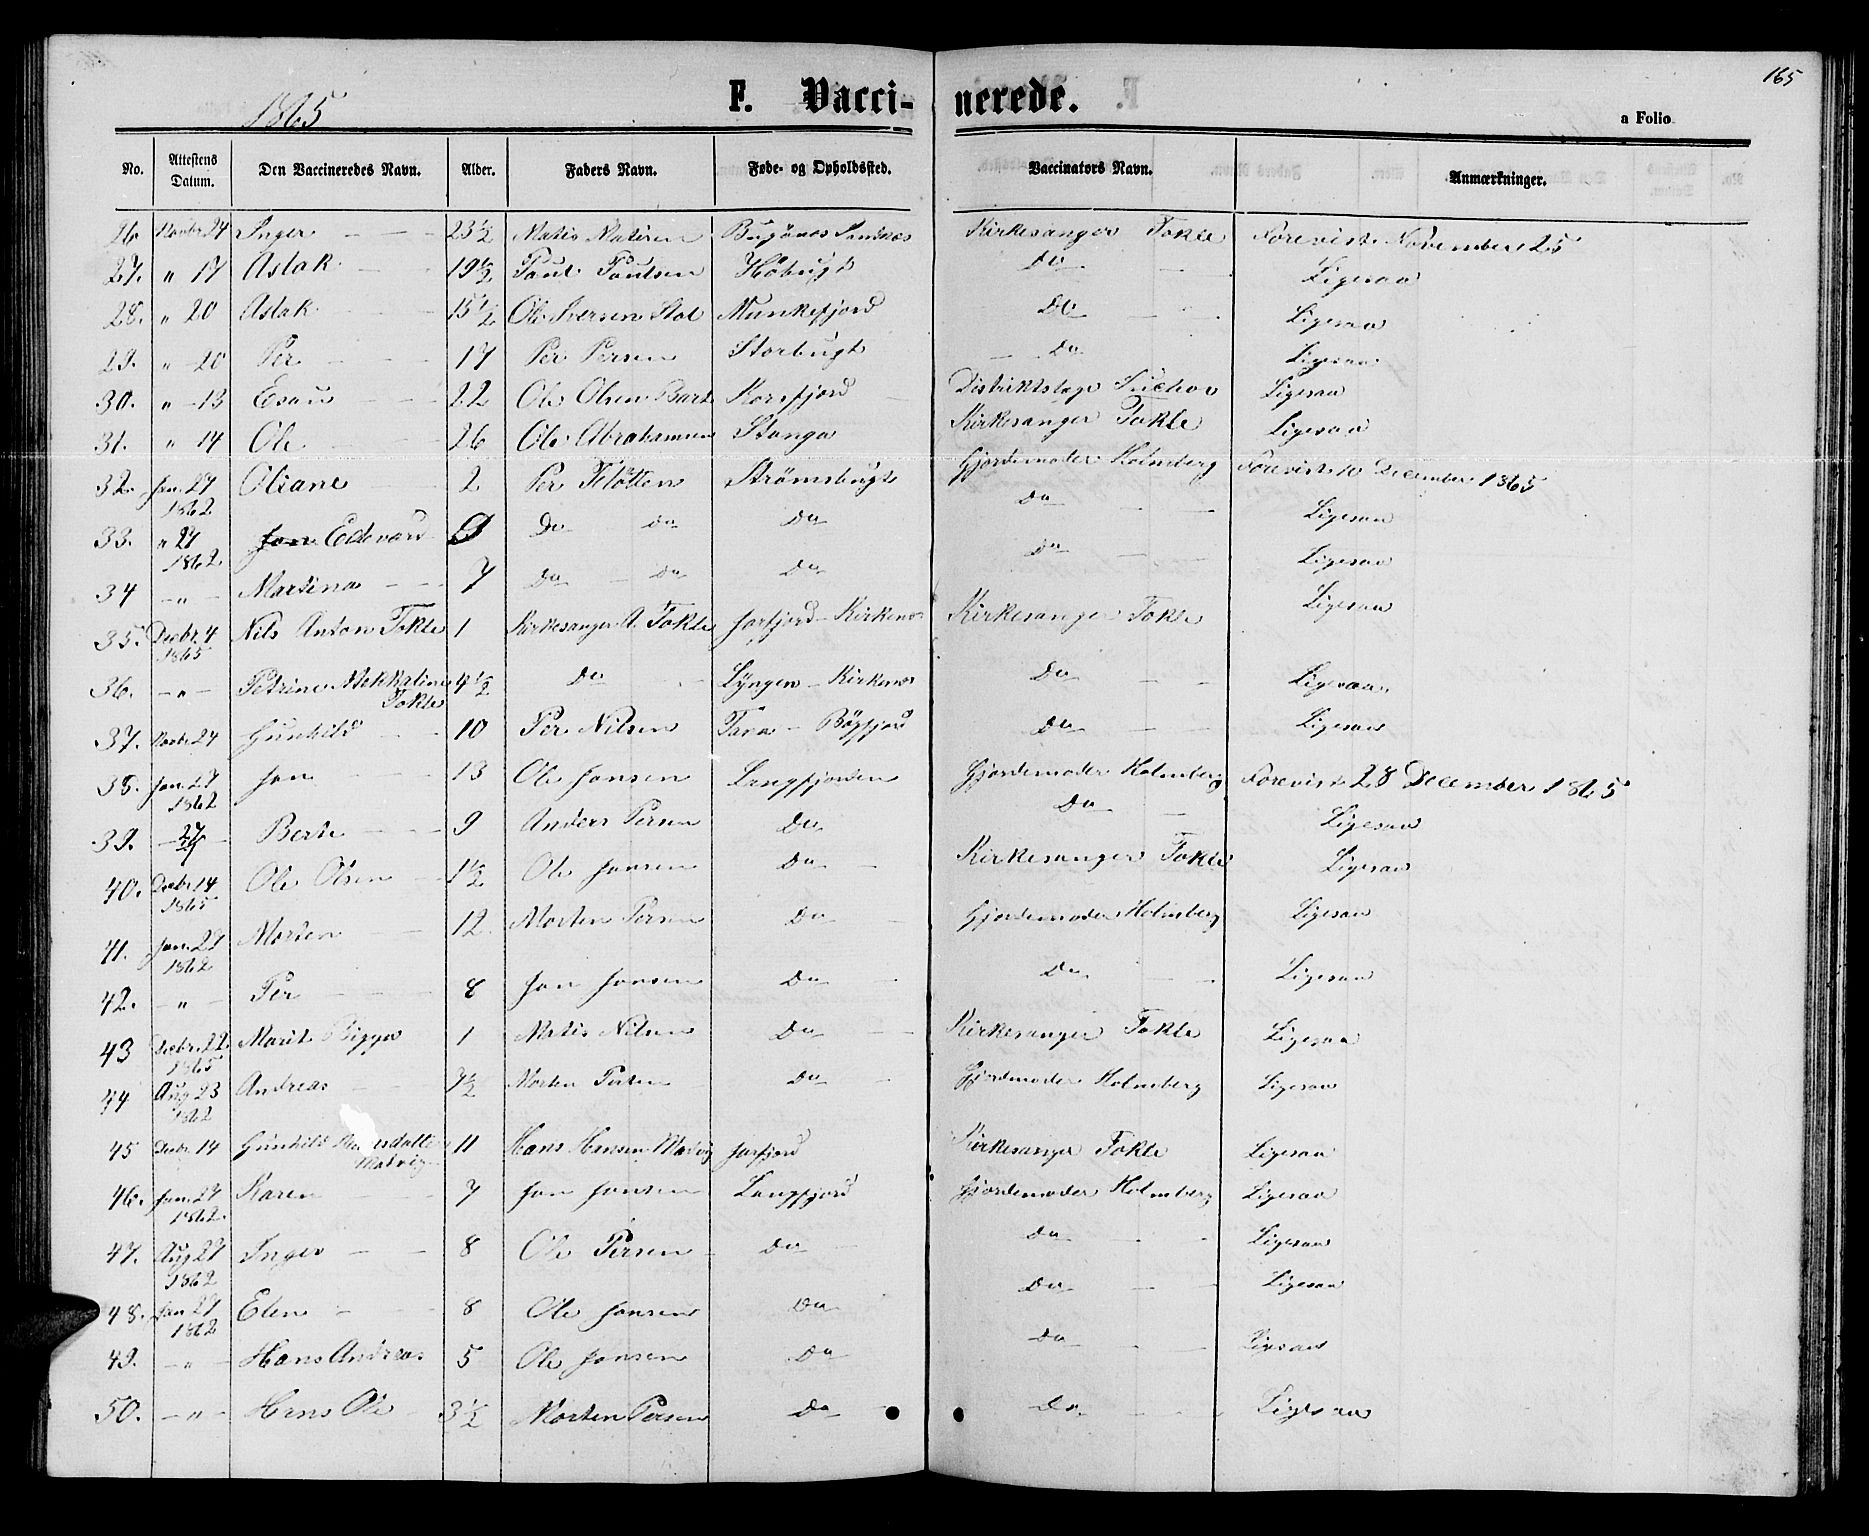 165
1865
F. Vaccinerede.
a Folio
No. Attestens Datum. Den Vaccineredes Navn. Alder. Faders Navn. Føde- og Opholdssted. Vaccinators Navn. Anmærkninger.
26 Novbr 24 Inger 23½ Matis Bugönes Kirkesanger Tokle Forevist November 25
27. " 17 Aslak 19½ Poul Poulsen Höbugt Do Ligesaa
28. " 20 Aslak 15½ Ole Iversen Munkefjord Do Ligesaa
29. " 20 Per 17 Per Persen Storbugt Do Ligesaa
30. " 13 Esau 22 Ole Olsen Korsfjord Distriktslæge Ligesaa
31. " 14 Ole 26 Ole Abrahamsen Stanga Kirkesanger Tokle Ligesaa
32. Jan. 27 1862 Oliane 2 Per Strømsbugt Gjordemoder Holmberg Forevist 10 December 1865
33. " 27 1862 Edevard Do Do Do Do Ligesaa
34 - " - Martina 7 Do Do Do Do Ligesaa
35. Decbr. 4 1865 Nils Anton Tokle 1 Kirkesanger A. Tokle Jarfjord - Kirkenes Kirkesanger Tokle Ligesaa
36. - " - Petrine Tokle 4½ Do Lyngen - Kirkenes Do Ligesaa
37. Novbr. 24 Gunhild 10 Per Nilsen Tana - Bögfjord Do Ligesaa
38. Jan. 27 1862 Jon 13 Ole Jonsen Langfjorden Gjordemoder Holmberg Forevist 28 December 1865
39. - 27 - Berit 9 Anders Persen Do Do Ligesaa
40. Decbr. 14 1865 Ole Olsen 1½ Ole Jonsen Do Kirkesanger Tokle Ligesaa
41. Jan. 27 1862 Morten 12 Morten Persen Do Gjordemoder Holmberg Ligesaa
42. - " - Per 8 Jon Jonsen Do Do Ligesaa
43 Decbr. 22 1865 Marit Bigga 1 Matis Nilsen Do Kirkesanger Tokle Ligesaa
44 Aug 23 1862 Andreas Morten Do Gjordemoder Holmberg Ligesaa
45 Decbr. 14 Gunhild Malvig 11 Hans Hansen Malvig Jarfjord Kirkesanger Tokle Ligesaa
46. Jan. 27 1862 Karen 7 Jon Jonsen Langfjord Gjordemoder Holmberg Ligesaa
47. Aug 27 1862 Inger 8 Ole Persen Do Do Ligesaa
48. Jan 27 1862 Elen 8 Ole Jonsen Do Do Ligesaa
49. - " - Hans Andreas 5 Ole Jonsen Do Do Ligesaa
50. - " - Hans Ole 3½ Morten Persen Do Do Ligesaa